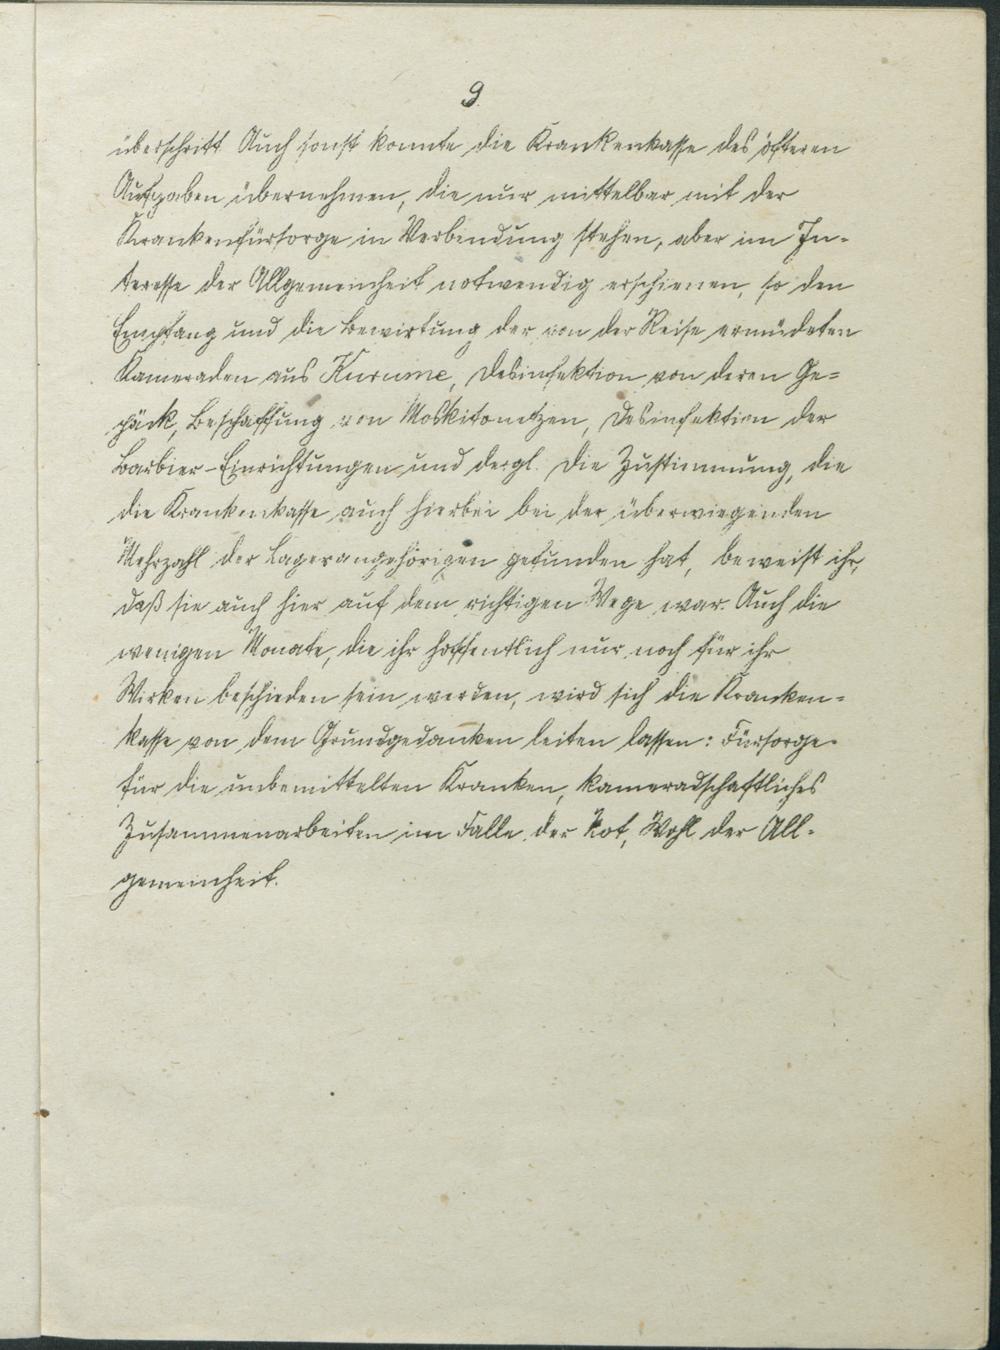 9.
überschritt. Auch sonst konnte die Krankenkasse des öfteren
Aufgaben übernehmen, die nur mittelbar mit der
Krankenfürsorge in Verbindung stehen, aber im In-
teresse der Allgemeinheit notwendig erschienen, so den
Empfang und die Bewirtung der von der Reise ermüdeten
Kameraden aus Kurume, Desinfektion von deren Ge-
päck, Beschaffung von Moskitonetzen, Desinfektion der
Barbier-Einrichtungen und dergl. Die Zustimmung, die
die Krankenkasse auch hierbei bei der überwiegenden
Mehrzahl der Lagerangehörigen gefunden hat, beweist ihr,
daß sie auch hier auf dem richtigen Wege war. Auch die
wenigen Monate, die ihr hoffentlich nur noch für ihr
Wirken beschieden sein werden, wird sich die Kranken-
kasse von dem Grundgedanken leiten lassen: Fürsorge
für die unbemittelten Kranken, kameradschaftliches
Zusammenarbeiten im Falle der Not, Wohl der All-
gemeinheit.